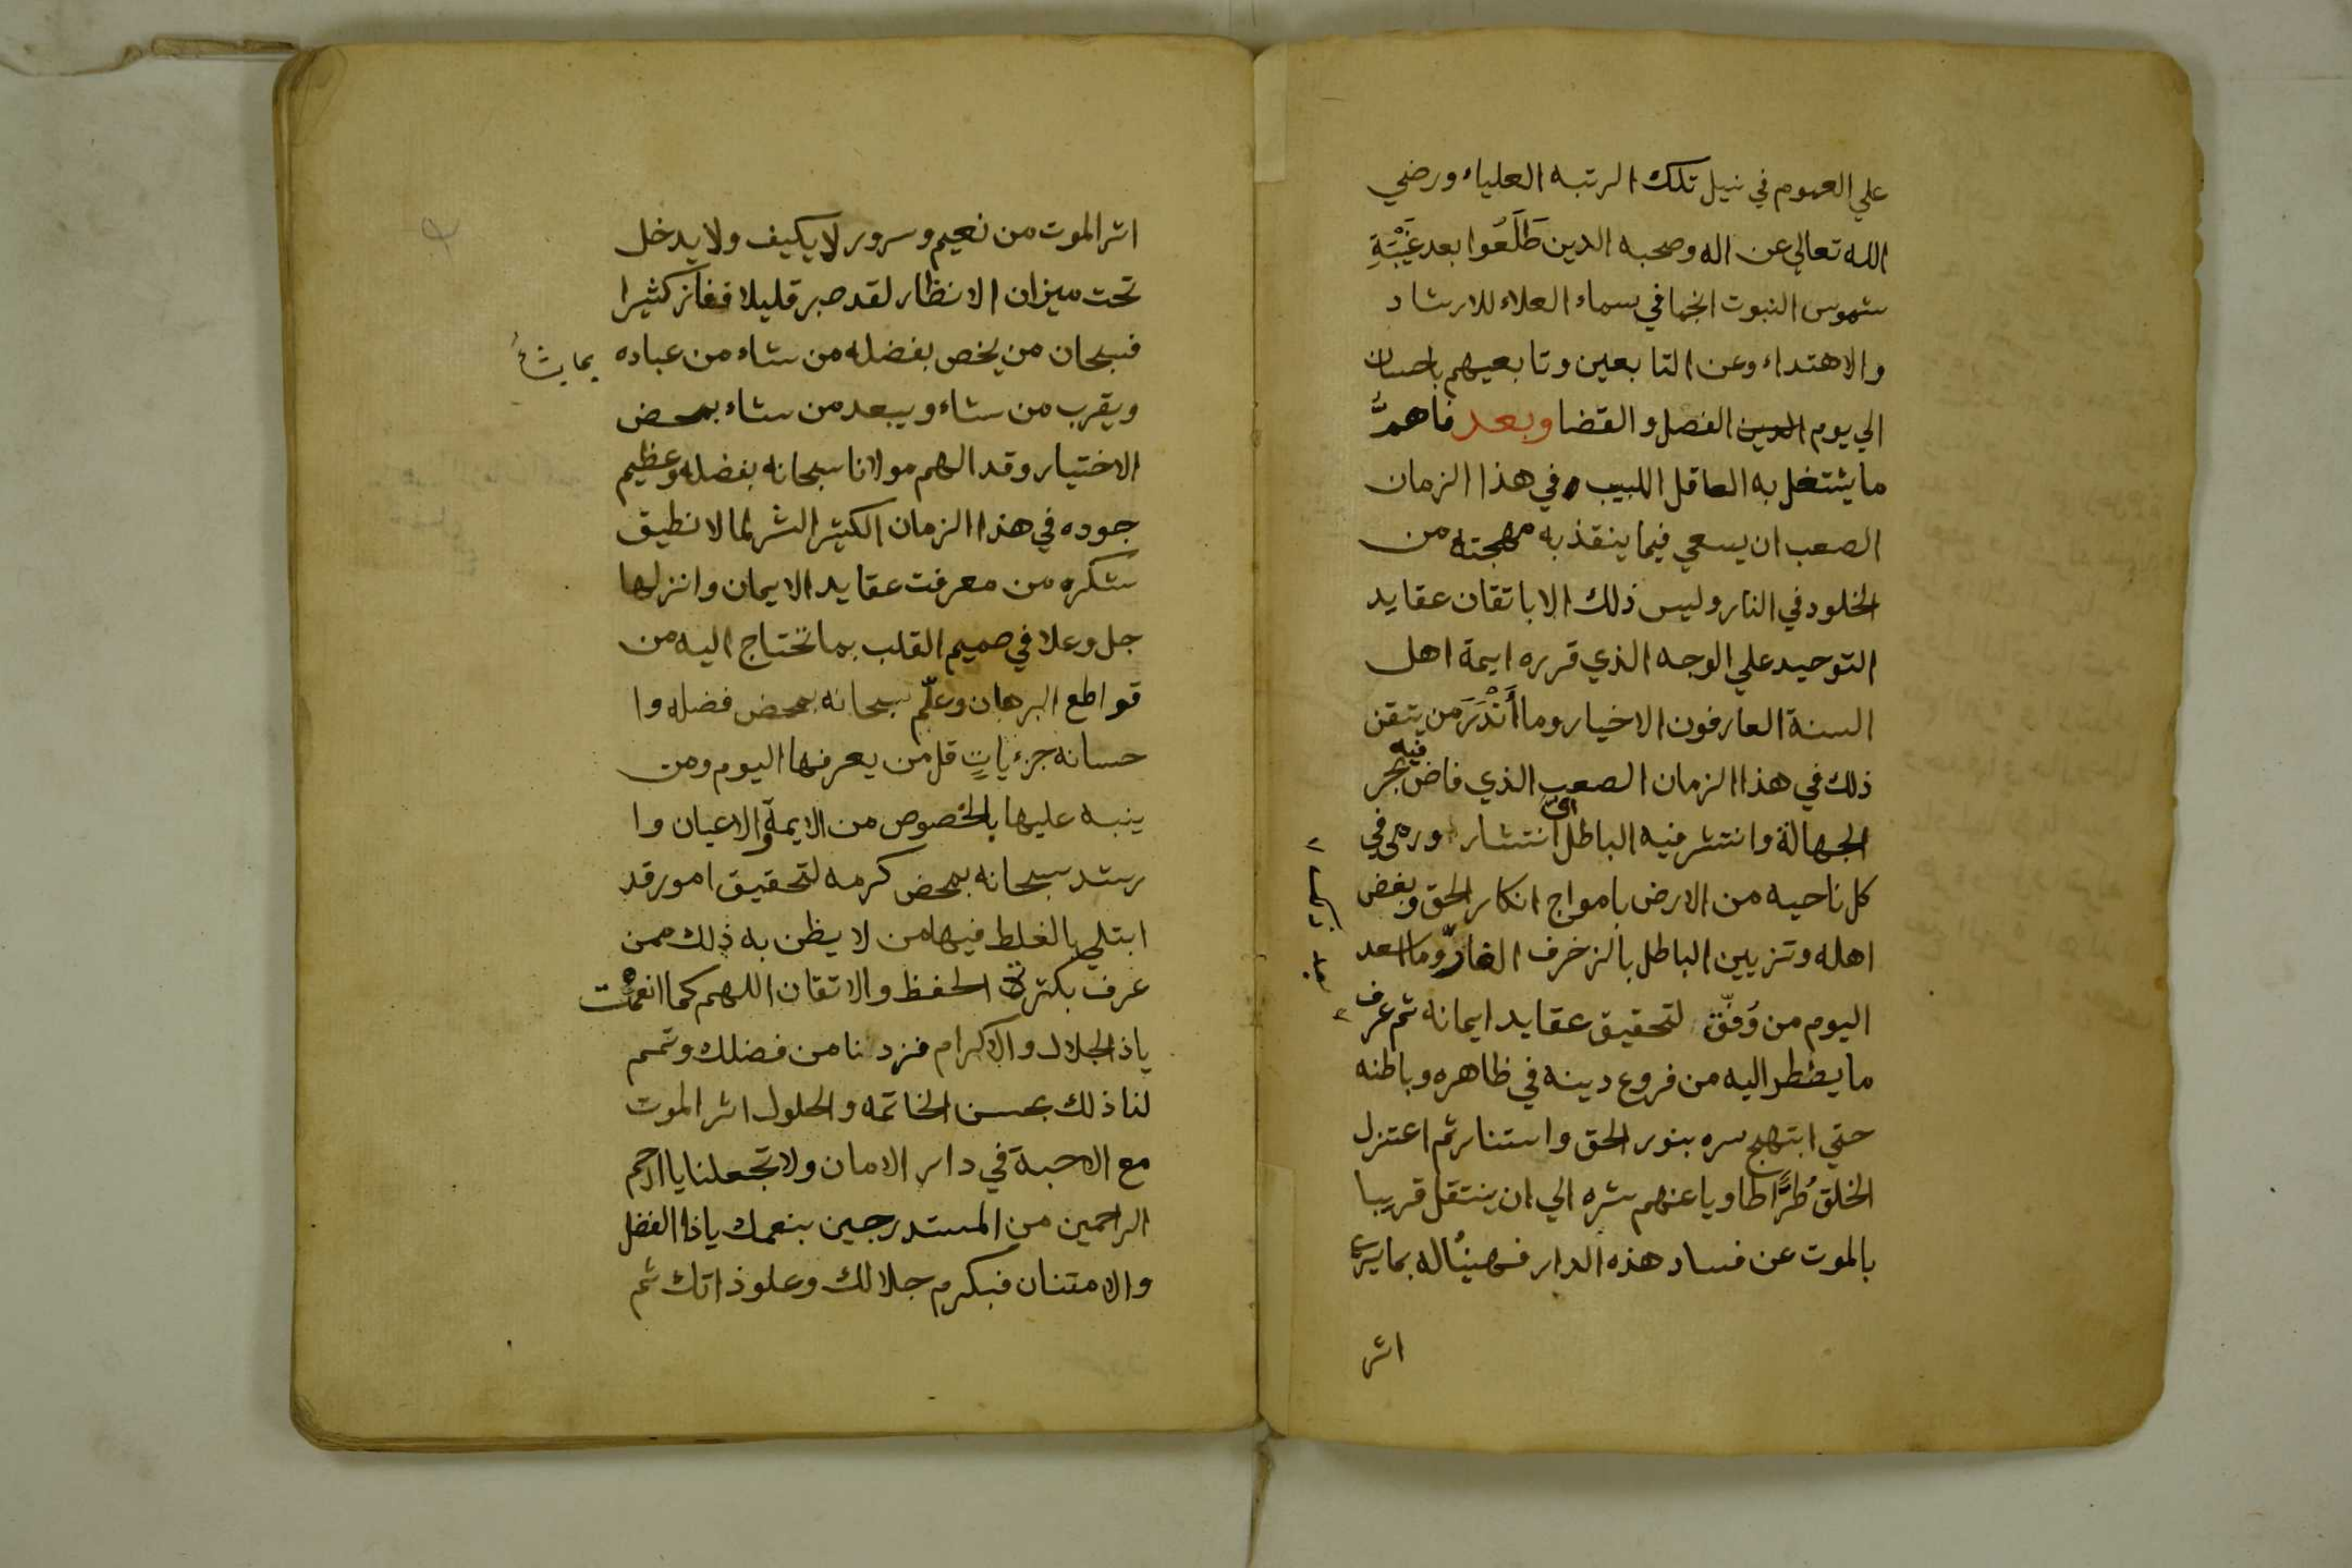 علي العموم في نيل تلك الرتبه العلياء ورضي
الله تعالي عن اله وصحبه الدين طَلَعُوا بعد غَيْبَةِ
شموس النبوت انجما في سماء العلاء للارشاد
والاهتداء وعن التابعين وتابعيهم باحسان
الي يوم الدين الفصل والقضا وبعد فاهمُّ
ما يشتغل به العاقل اللبيب في هذا الزمان
الصعب ان يسعي فيما ينقذ به مهجته من
الخلود في النار وليس ذلك الا باتقان عقايد
التوحيد علي الوجه الذي قرره ايمة اهل
السنة العارفون الاخيار وما أَنْدَرَ من يتقن
ذلك في هذا الزمان الصعب الذي فاض فيه بحر
الجهالة وانتشر فيه الباطل اي انتشار ورمي في
كل ناحيه من الارض بامواج انكار الحق وبغض
اهله وتزيين الباطل بالزخرف الغارّ وما اسعد
اليوم من وُفّق لتحقيق عقايد ايمانه ثم عرف
ما يضطر اليه من فروع دينه في ظاهره وباطنه
حتي ابتهج سره بنور الحق واستنار ثم اعتزل
الخلق طُرًّا طاويا عنهم شره الي ان ينتقل قريبا
بالموت عن فساد هذه الدار فهنيئا له بما يري
اثر
اثر الموت من نعيم وسرور لا يكيف ولا يدخل
تحت ميزان الانظار لقد صبر قليلا ففاز كثيرا
فسبحان من يخص بفضله من شاء من عباده بما يشاء
ويقرب من شاء ويبعد من شاء بمحض
الاختيار وقد الهم مولانا سبحانه بفضله وعظيم
جوده في هذا الزمان الكثير الشر لما لا نطيق
شكره من معرفت عقايد الايمان وانزلها
جل وعلا في صميم القلب بما تحتاج اليه من
قواطع البرهان وعلّم سبحانه بمحض فضله وا
حسانه جزءياتٍ قل من يعرفها اليوم ومن
ينبه عليها بالخصوص من الايمة والاعيان وا
رشد سبحانه بمحض كرمه لتحقيق امور قد
ابتلي بالغلط فيها من لا يظن به ذلك ممن
عرف بكثرة الحفظ والاتقان اللهم كما انعمت
ياذ الجلال والاكرام فزدنا من فضلك وتمم
لنا ذلك بحسن الخاتمه والحلول اثر الموت
مع الاحبة في دار الامان ولا تجعلنا يا ارحم
الراحمين من المستدرجين بنعمك ياذا الفضل
والامتنان فبكرم جلالك وعلو ذاتك ثم